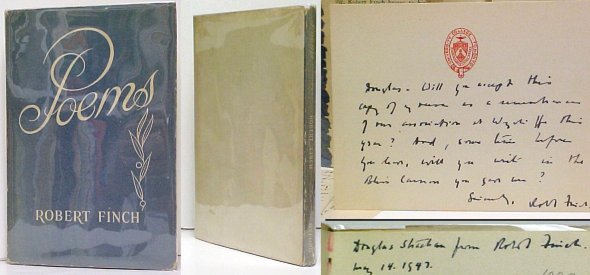 Poems
ROBERT FINCH
ROBERT FINCH
Douglas - Will you accept this
copy of my verse as a remembrance
of our association at Wycliffe this
year? And, some time before
you leave, will you write in the
you gave me?
Sincerely, Robt Finch
Douglas from Robt Finch.
May 14. 1947.